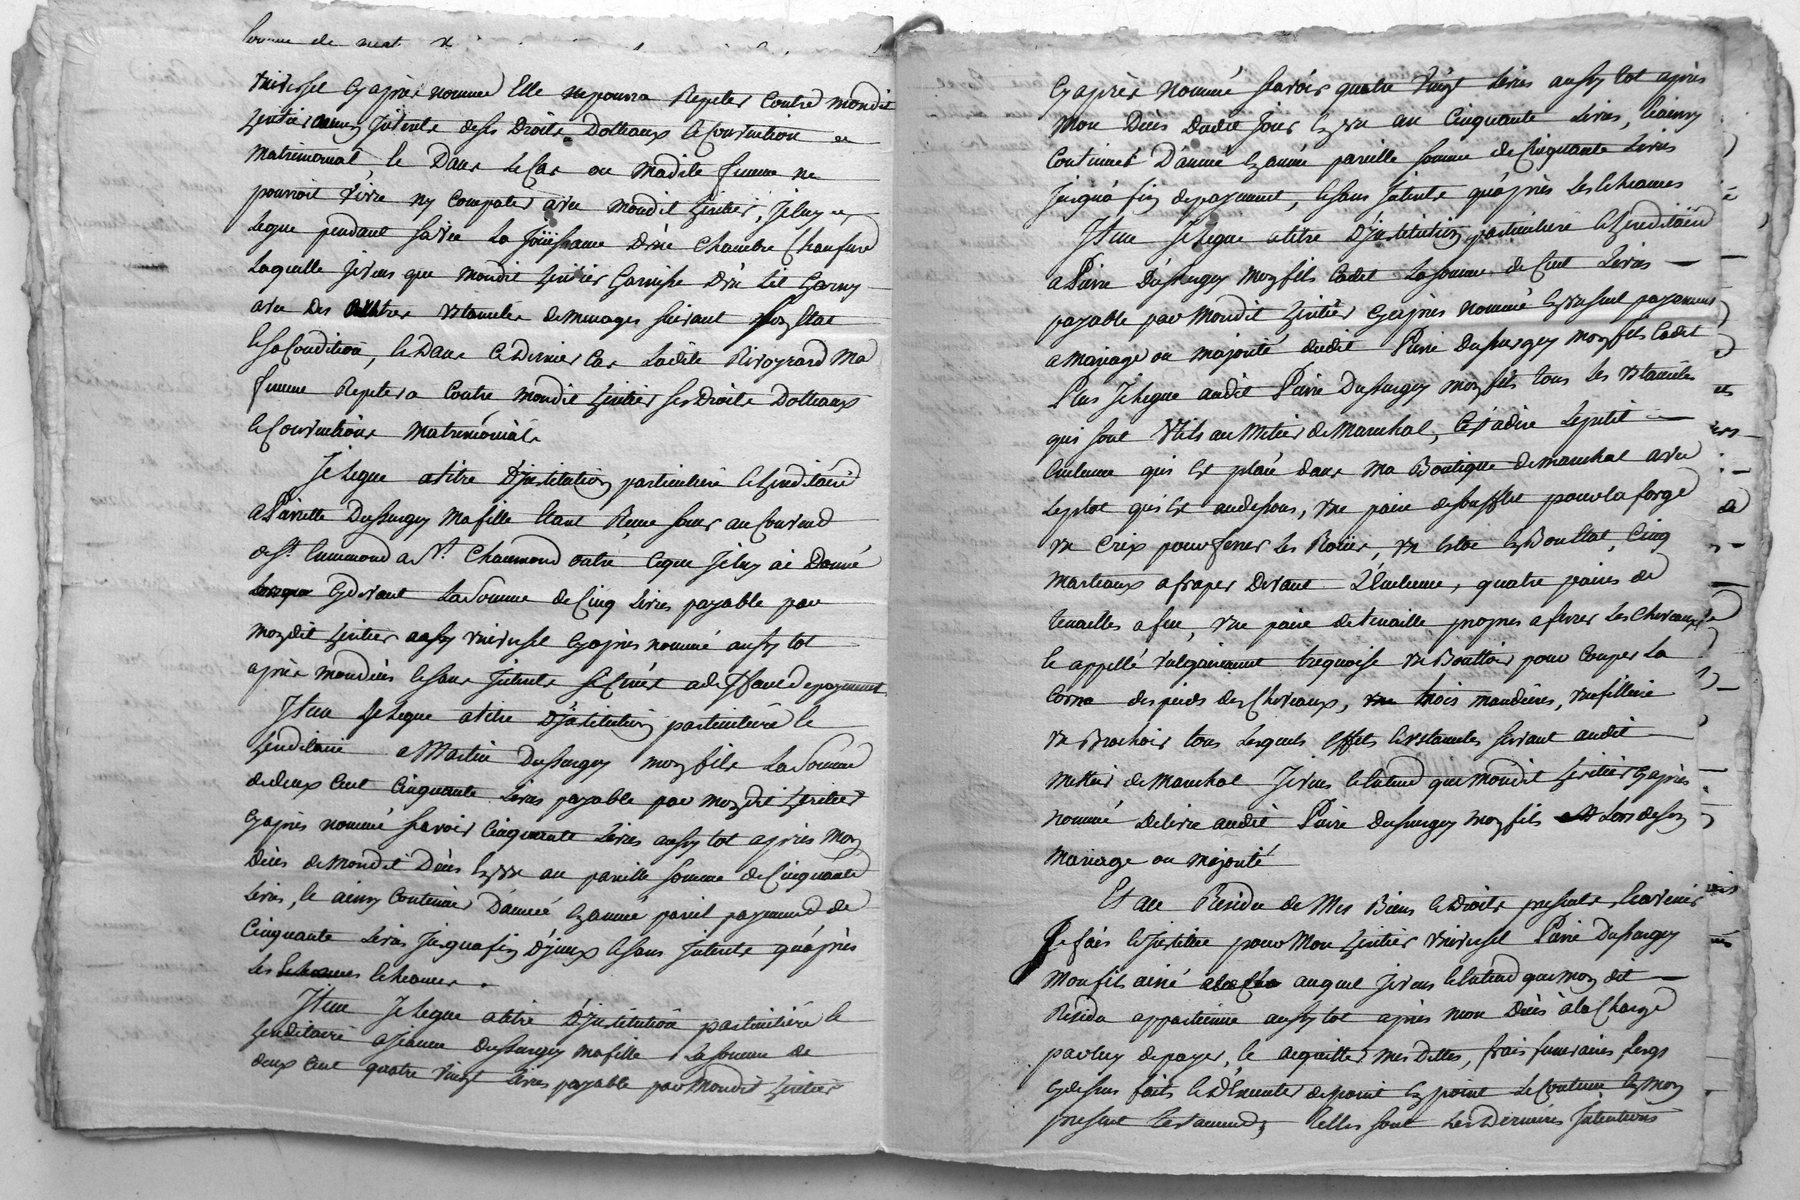 universel cyapres nommé Elle ne poura Repeter Contre mondit
heritier aucun Jnterets deses Droits Dotteaux & Convention
matrimonial & Dans le Cas ou madite femme ne
pourroit vivre ny Compater avec mondit heritier, Je luy
legue pendant sa vie la Joüissance D'une Chambre
Laquelle Je veus que mondit heritier Garnisse D'un Lit Garny
avec Des autres ustancilles de menages suivant son Etat
& sa Condition, & Dans ce Dernier Cas Ladite Rivoyrard Ma
femme Repetera Contre mondit heritier ses Droits Dotteaux
& Conventions Matrimonials
Je Legue a titre D'jnstitution particuliere & hereditaire
a Pierrette Dussurgey ma fille Etant sœur au Couvent
de St. a St. Chaumond outre ceque Je luy ai Donné
cy devant La somme de Cinq Livres payable par
mon dit heritier universel cyapres nommé aussy tot
après mon décès & sans Jnterets si ce n'est a deffaut de payement
Jtem Je Legue a titre D'jnstitution particuliere &
hereditaire a Martin Dussurgey mon fils La Somme
de deux Cent Cinquante Livres payable par mon dit heritier
cyapres nommé savoir Cinquante Livres aussy tot après mon
Décès de Mondit Décès en un an pareille somme de Cinquante
Livres, & ainsy Continuer D'année en année pareil payement de
Cinquante Livres Jusqua fin D'jceux & sans Jnterets qu'après
les Echeances
Jtem Je Legue a titre D'jnstitution particuliere &
hereditaire a Jeanne Dussurgey ma fille La Somme de
deux Cent quatre Vingt Livres payable par Mondit heritier
cyaprès Nommé savoir quatre Vingt Livres aussy tot apres
Mon Décès Dudit Jour en un an Cinquante Livres, & ainsy
Continuer D'année en année pareille somme de Cinquante Livres
Jusqu'a fin de payement, & sans Jnterets qu'après les Echeances
Jtem Je Legue a titre D'jnstitution particuliere & hereditaire
a Pierre Dussurgey mon fils Cadet La somme de Cent Livres
payable par Mondit heritier cyapres Nommé en un seul payement
a Mariage ou majorité dudit Pierre Dussurgey mon fils Cadet
Plus Je Legue audit Pierre Dussurgey mon fils tous les ustancilles
qui sont Utils au Métier de Marechal, C'est a dire Le petit
Enclume qui est placé dans ma Boutique de marechal avec
Le plot qui est au dessous, une paire de soufflet pour la forge
un Crix pour ferrer les Roües, un Etoc Cinq
Marteaux a fraper Devant L'Enclume, quatre paires de
tenailles a feu, une paire de tenaille propres a ferrer les Chevaux
& appellé Vulgairement trequoise un Bouttoir pour Couper La
Corne des pieds des Chevaux, trois mandrins, une filliere
un Brochoir tous Lesquels Effets & ustancilles servant audit
mettier de Marechal Je veus & entend que Mondit heritier cyapres
nommé Delivre audit Pierre Dussurgey mon fils Lors de son
Mariage ou majorité
Et au Residu de Mes Biens & Droits presents & avenir
Je fais & Jnstitue pour Mon heritier universel Pierre Dussurgey
Mon fils ainé auquel Je veus & entend que mon dit
Residu appartienne aussy tot après mon Décès a la Charge
par luy de payer, & acquitter mes Dettes, frais funeraires, Legs
cy dessus faits & D'Executer de point en point Le Contenu en mon
present testament, telles sont Les Dernieres Jntentions